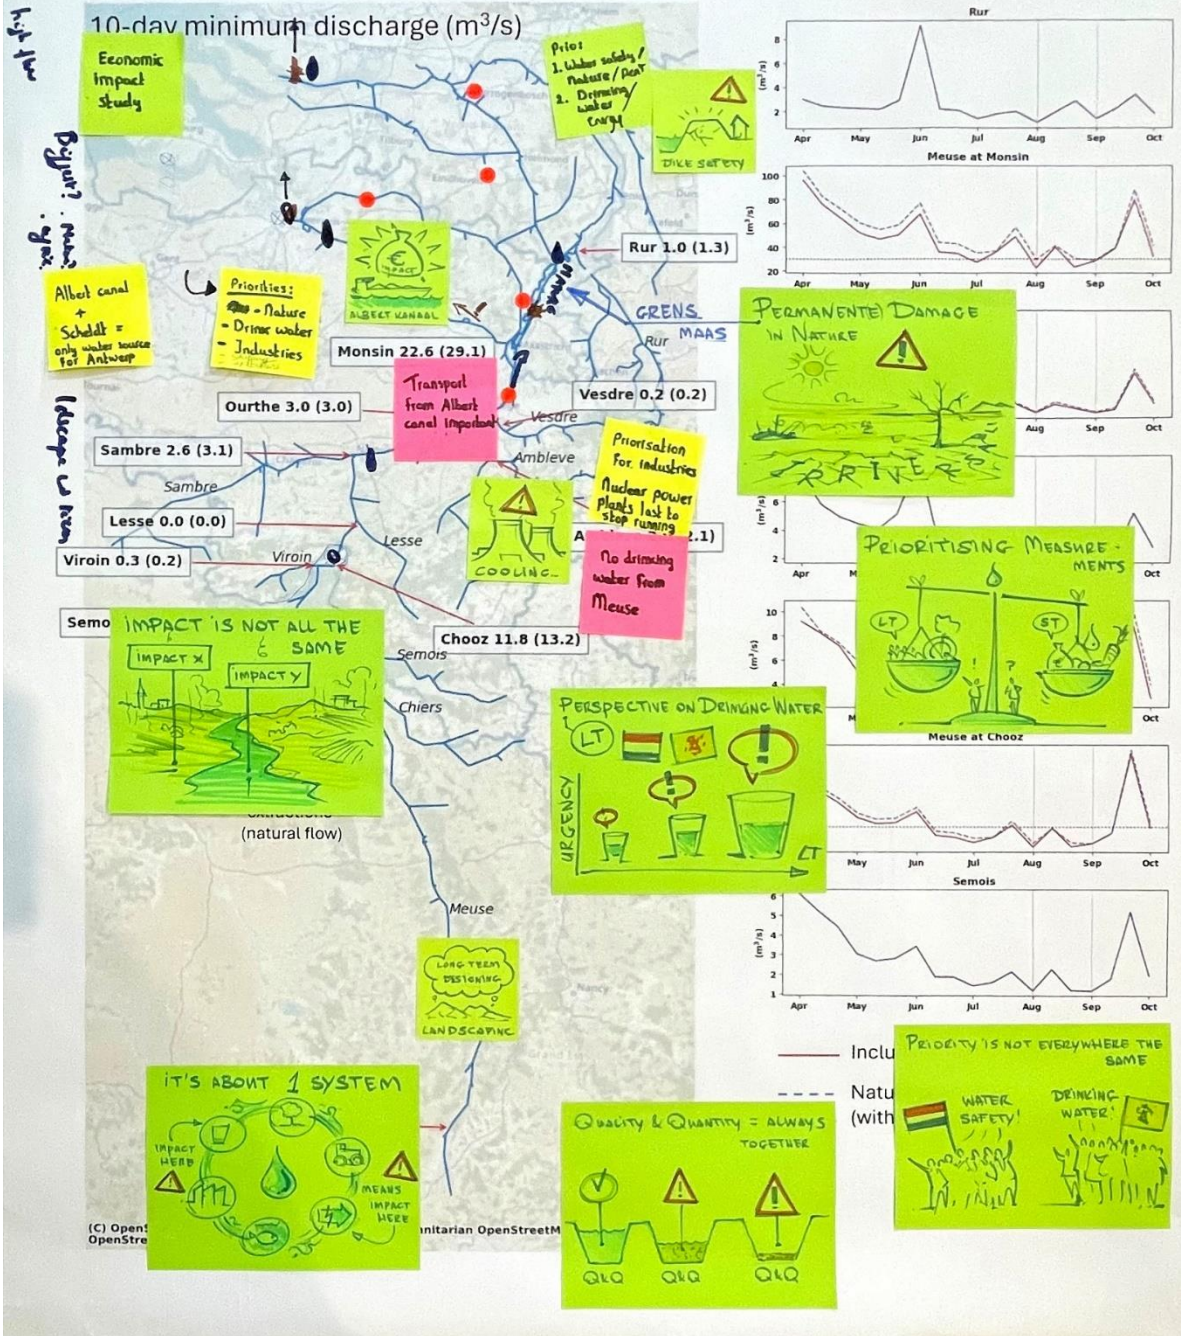 10-day minimum discharge (m³/s)
high flow
Economic
impact
study
Prio:
1. Water safety/
Nature/
2. Drinking
water/
energy
DIKE SAFETY
Albert canal
+
Scheldt =
only water source
for Antwerp
Priorities:
- Nature
- Drink water
- Industries
€
IMPACT
ALBERT KANAAL
Rur 1.0 (1.3)
GRENS
MAAS
Rur
Monsin 22.6 (29.1)
Transport
from Albert
canal important
Vesdre 0.2 (0.2)
Ourthe 3.0 (3.0)
Vesdre
Sambre 2.6 (3.1)
Sambre
Ambleve
Priorisation
for industries
Nuclear power
plants last to
stop running
2.1)
Lesse 0.0 (0.0)
Lesse
Viroin 0.3 (0.2)
Viroin
COOLING
No drinking
water from
Meuse
Chooz 11.8 (13.2)
Semo
IMPACT IS NOT ALL THE
SAME
IMPACT X
IMPACT Y
Semois
Chiers
(natural flow)
PERSPECTIVE ON DRINKING WATER
LT
URGENCY
LT
Meuse
LONG TERM
DESIGNING
LANDSCAPING
Nancy
IT'S ABOUT 1 SYSTEM
IMPACT
HERE
MEANS
IMPACT
HERE
(C) OpenS
OpenStre
anitarian OpenStreetM
QUALITY & QUANTITY = ALWAYS
TOGETHER
Q&Q
Q&Q
Q&Q
Rur
(m³/s)
8
6
4
2
Apr May Jun Jul Aug Sep Oct
Meuse at Monsin
(m³/s)
100
80
60
40
20
Apr May Jun Jul Aug Sep Oct
PERMANENTE DAMAGE
IN NATURE
RIVER
Aug Sep Oct
(m³/s)
6
4
2
Apr
Oct
PRIORITISING MEASURE-
MENTS
LT
ST
!
?
(m³/s)
10
8
6
4
Oct
Meuse at Chooz
May Jun Jul Aug Sep Oct
Semois
(m³/s)
6
5
4
3
2
1
Apr May Jun Jul Aug Sep Oct
Inclu
Natu
(with
PRIORITY IS NOT EVERYWHERE THE
SAME
WATER
SAFETY!
DRINKING
WATER!